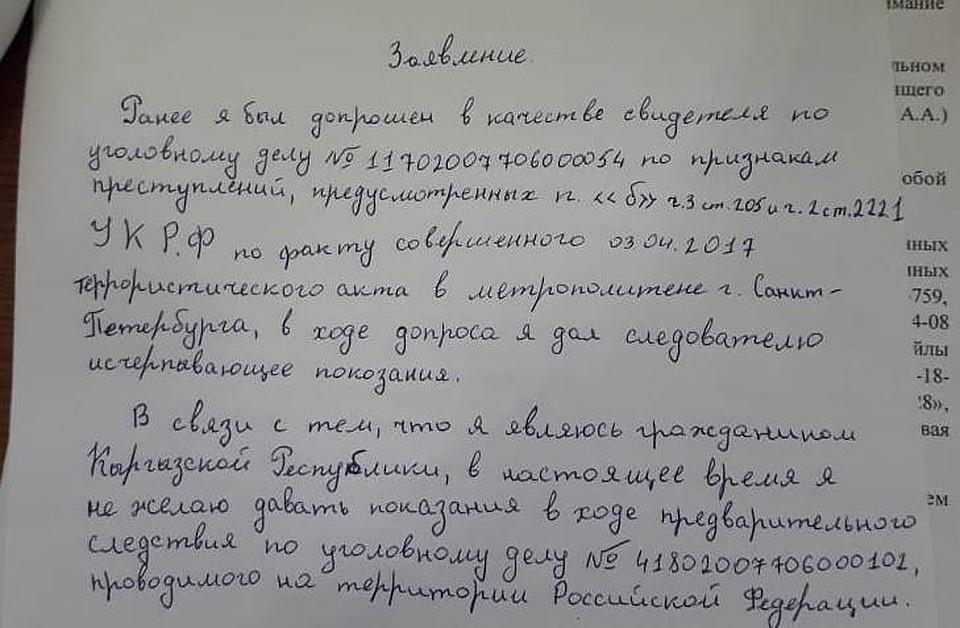 имание
Заявление.
льном
ящего
А.А.)
Ранее я был допрошен в качестве свидетеля по
уголовному делу № 11702007706000054 по признакам
обой
преступлений, предусмотренных п. «б» ч.3 ст.205 и ч.2 ст.2221
УК Р.Ф по факту совершенного 03.04.2017
нных
нных
террористического акта в метрополитене г. Санкт-
759,
4-08
Петербурга, в ходе допроса я дал следователю
йлы
исчерпывающее покозания.
-18-
:8»,
В связи с тем, что я являюсь гражданином
вая
Кыргызской Республики, в настоящее время я
не желаю давать показания в ходе предварительного
ем
следствия по уголовному делу № 41802007706000102,
проводимого на территории Российской Федерации.